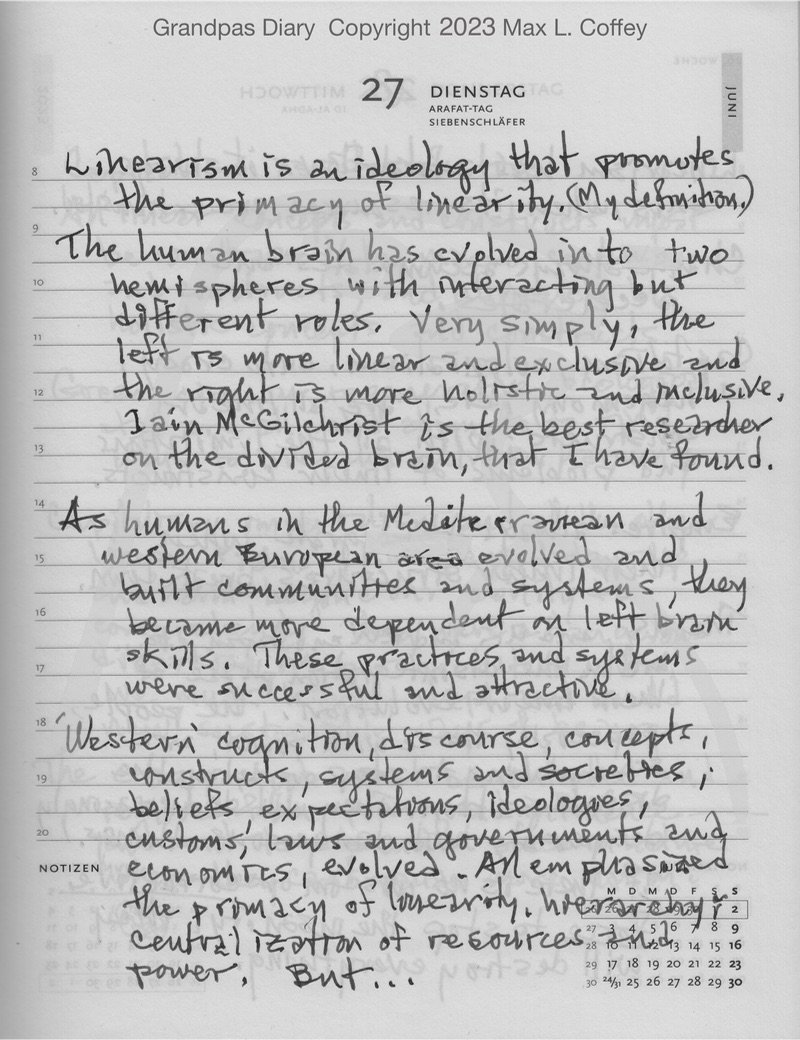 Grandpas Diary Copyright 2023 Max L. Coffey
27 DIENSTAG
ARAFAT-TAG
SIEBENSCHLÄFER
JUNI
8 Linearism is an ideology that promotes
the primacy of linearity. (My definition.)
9
The human brain has evolved into two
10 hemispheres with interacting but
different roles. Very simply, the
11
left is more linear and exclusive and
12 the right is more holistic and inclusive.
Iain McGilchrist is the best researcher
13 on the divided brain, that I have found.
14
As humans in the Mediterranean and
15 western European area evolved and
built communities and systems, they
16
became more dependent on left brain
skills. These practices and systems
17
were successful and attractive.
18
'Western' cognition, discourse, concepts,
19 constructs, systems and societies,
beliefs, expectations, ideologies,
20 customs, laws and governments and
NOTIZEN economics, evolved. All emphasized
the primacy of linearity, hierarchy,
centralization of resources and
power. But...
M D M D F S S
2
27 3 4 5 6 7 8 9
28 10 11 12 13 14 15 16
29 17 18 19 20 21 22 23
30 24/31 25 26 27 28 29 30